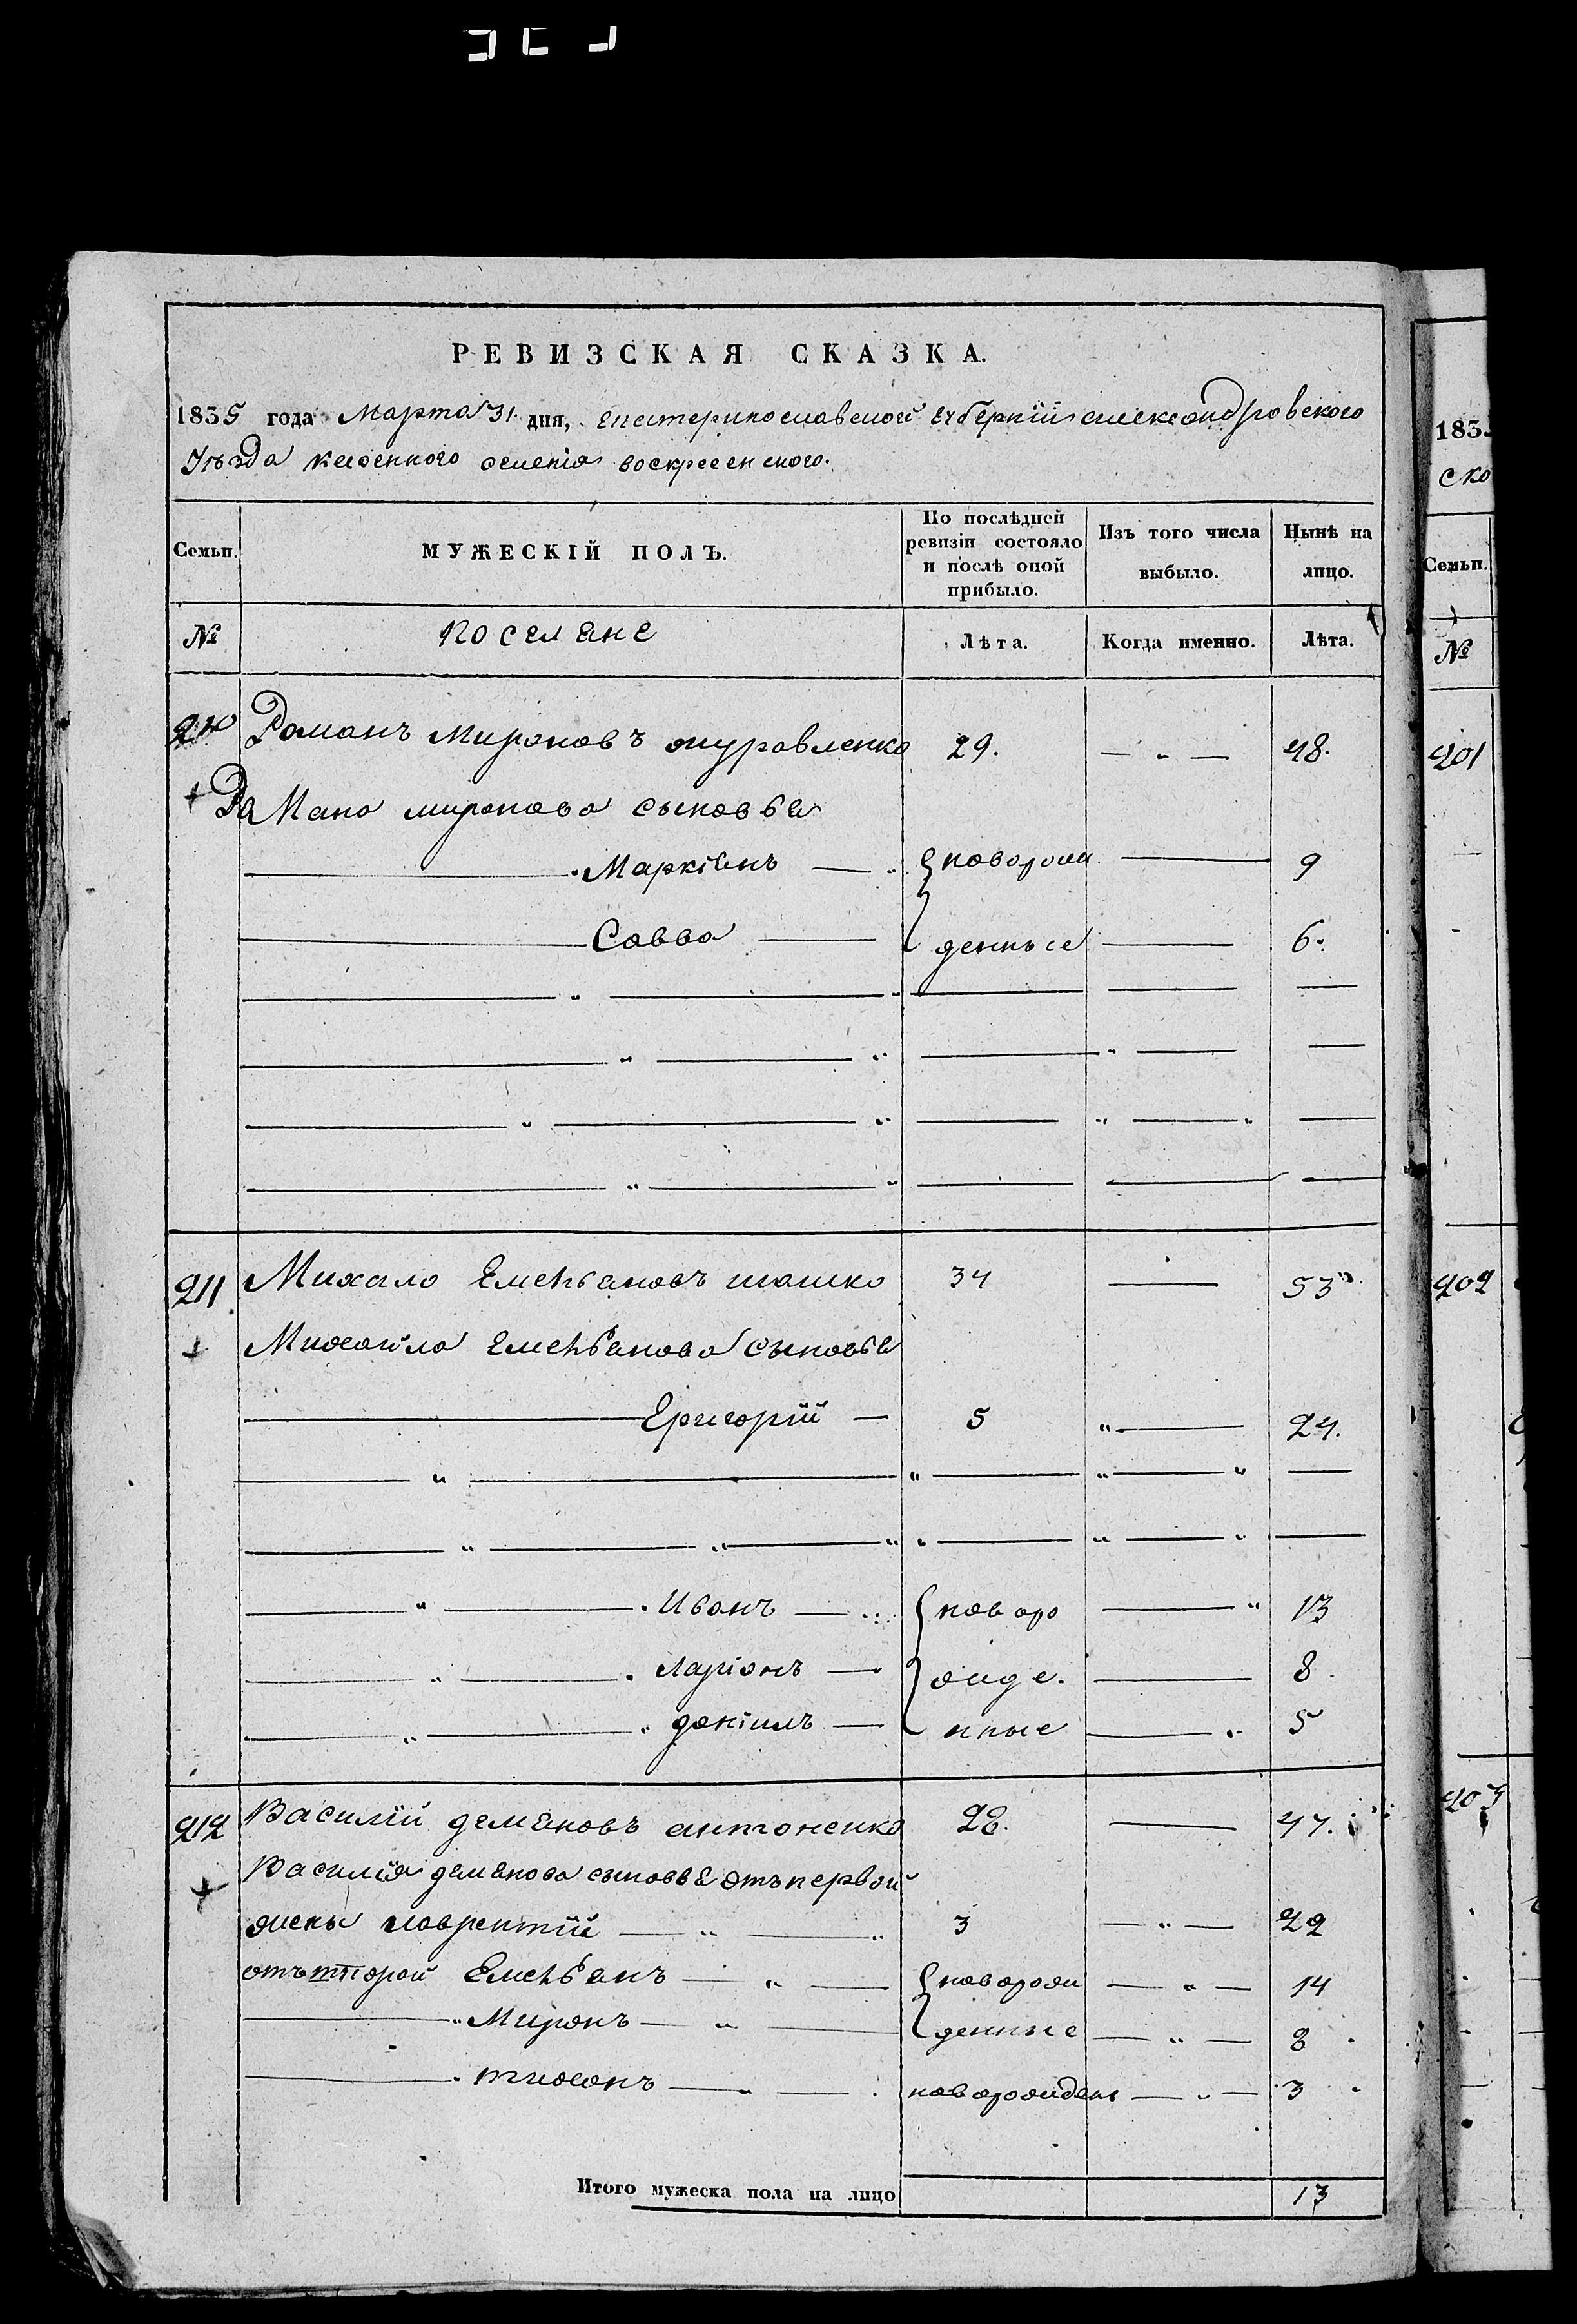 РЕВИЗСКАЯ СКАЗКА.
1835 года Марта 31. дня, Екатеринославской Губерніи Александровского
Уѣзда казенного селенія воскресенского.
Семьи. МУЖЕСКІЙ ПОЛЪ. По послѣдней ревизіи состояло и послѣ оной прибыло. Изъ того числа выбыло. Нынѣ на лицо.
№ Поселяне Лѣта. Когда именно. Лѣта.
210 Романъ Мироновъ журавленко 29. — " — 48.
+ Романа миронова сыновья
Маркіянъ — { новорож — 9
Савва — денные — 6.
211 Михайло Емельяновъ 34 — 53
+ Михайла Емельянова сыновья
Григорій — 5 " — 24.
Иванъ — { новоро — " 13
Ларіонъ — жде. — 8.
даніилъ — нные — 5
212 Василій демяновъ антоненко 28. — 47.
+ Василія демянова сыновья отъ первой
жены лаврентій — " — 3 — " — 22
отъ второй Емельянъ — " — { новорож — " — 14
Миронъ — " — денные — " — 8
тихонъ — новорожден — " — 3
Итого мужеска пола на лицо 13
183
ско
Семьи.
№